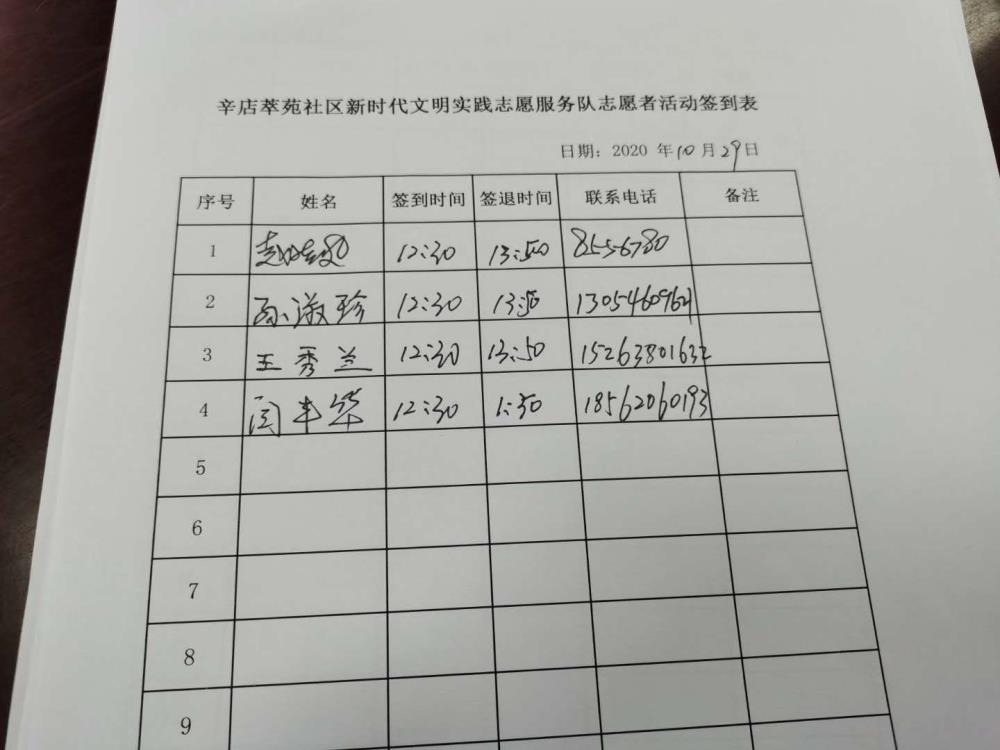 辛店萃苑社区新时代文明实践志愿服务队志愿者活动签到表
日期：2020 年10月29日
序号 姓名 签到时间 签退时间 联系电话 备注
1 12:30 13:50 8556780
2 孙淑珍 12:30 13:50
3 王秀兰 12:30 13:50 15263801632
4 闫丰华 12:30 1:30 18562060193
5
6
7
8
9